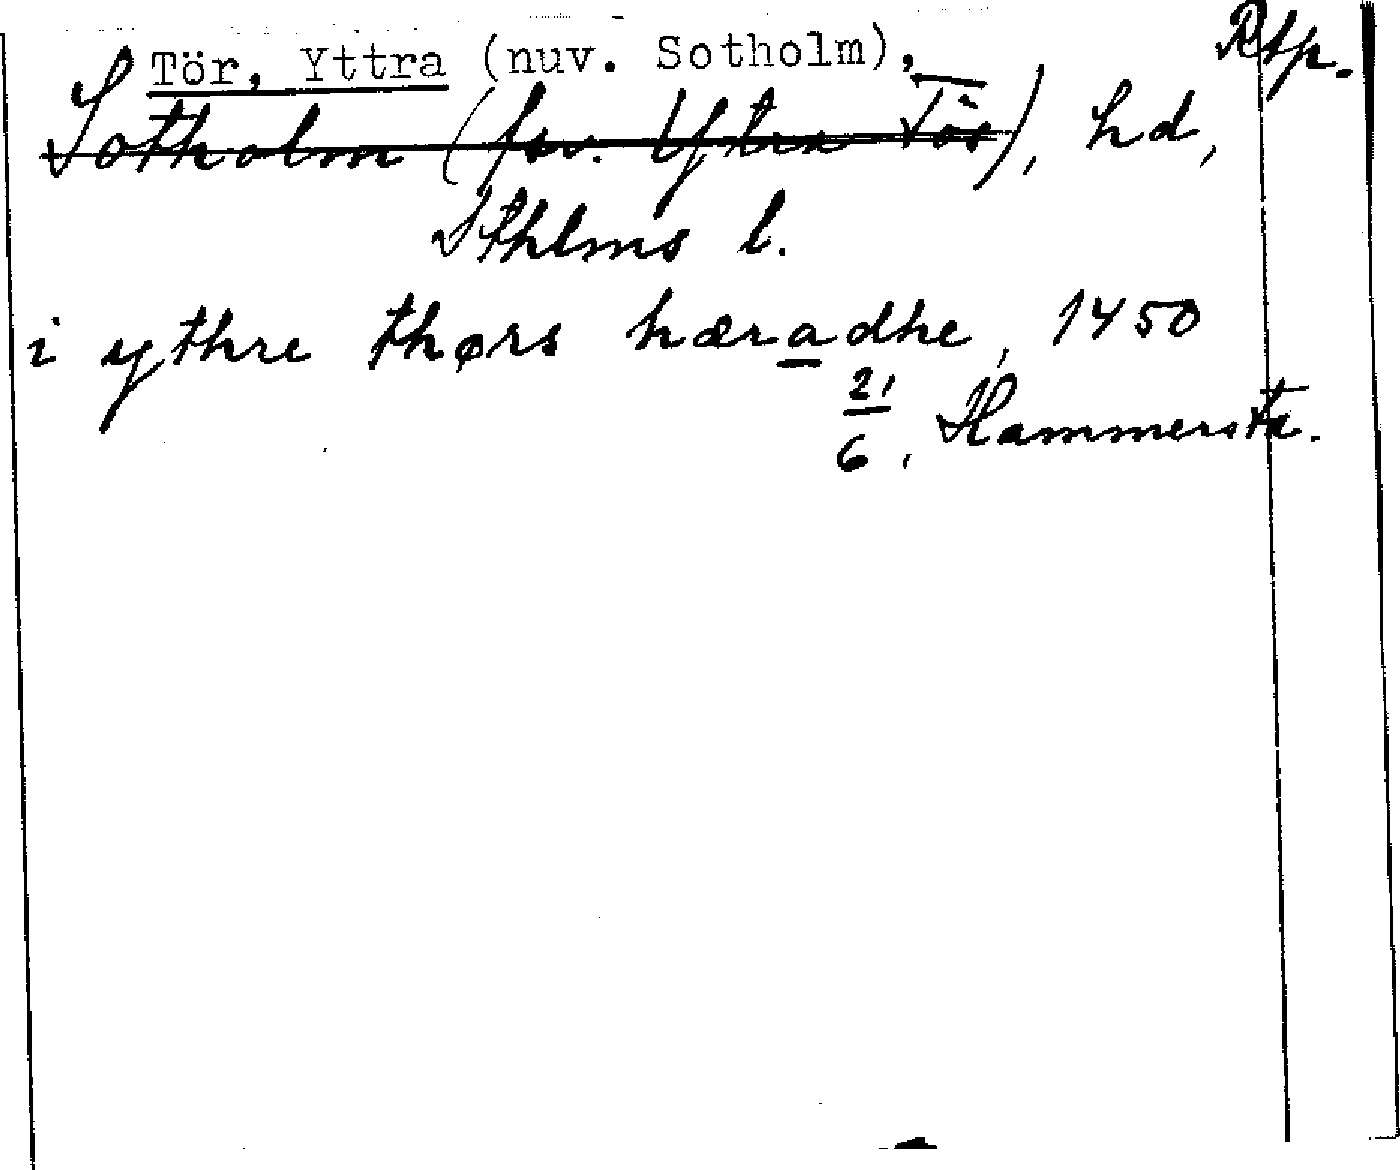 Tör, Yttra (nuv. Sotholm), Rtp.
Sotholm (fsv. Ytra Tör), hd,
Sthlms l.
i ythre thørs hæradhe, 1450
21/6, Hammersta.